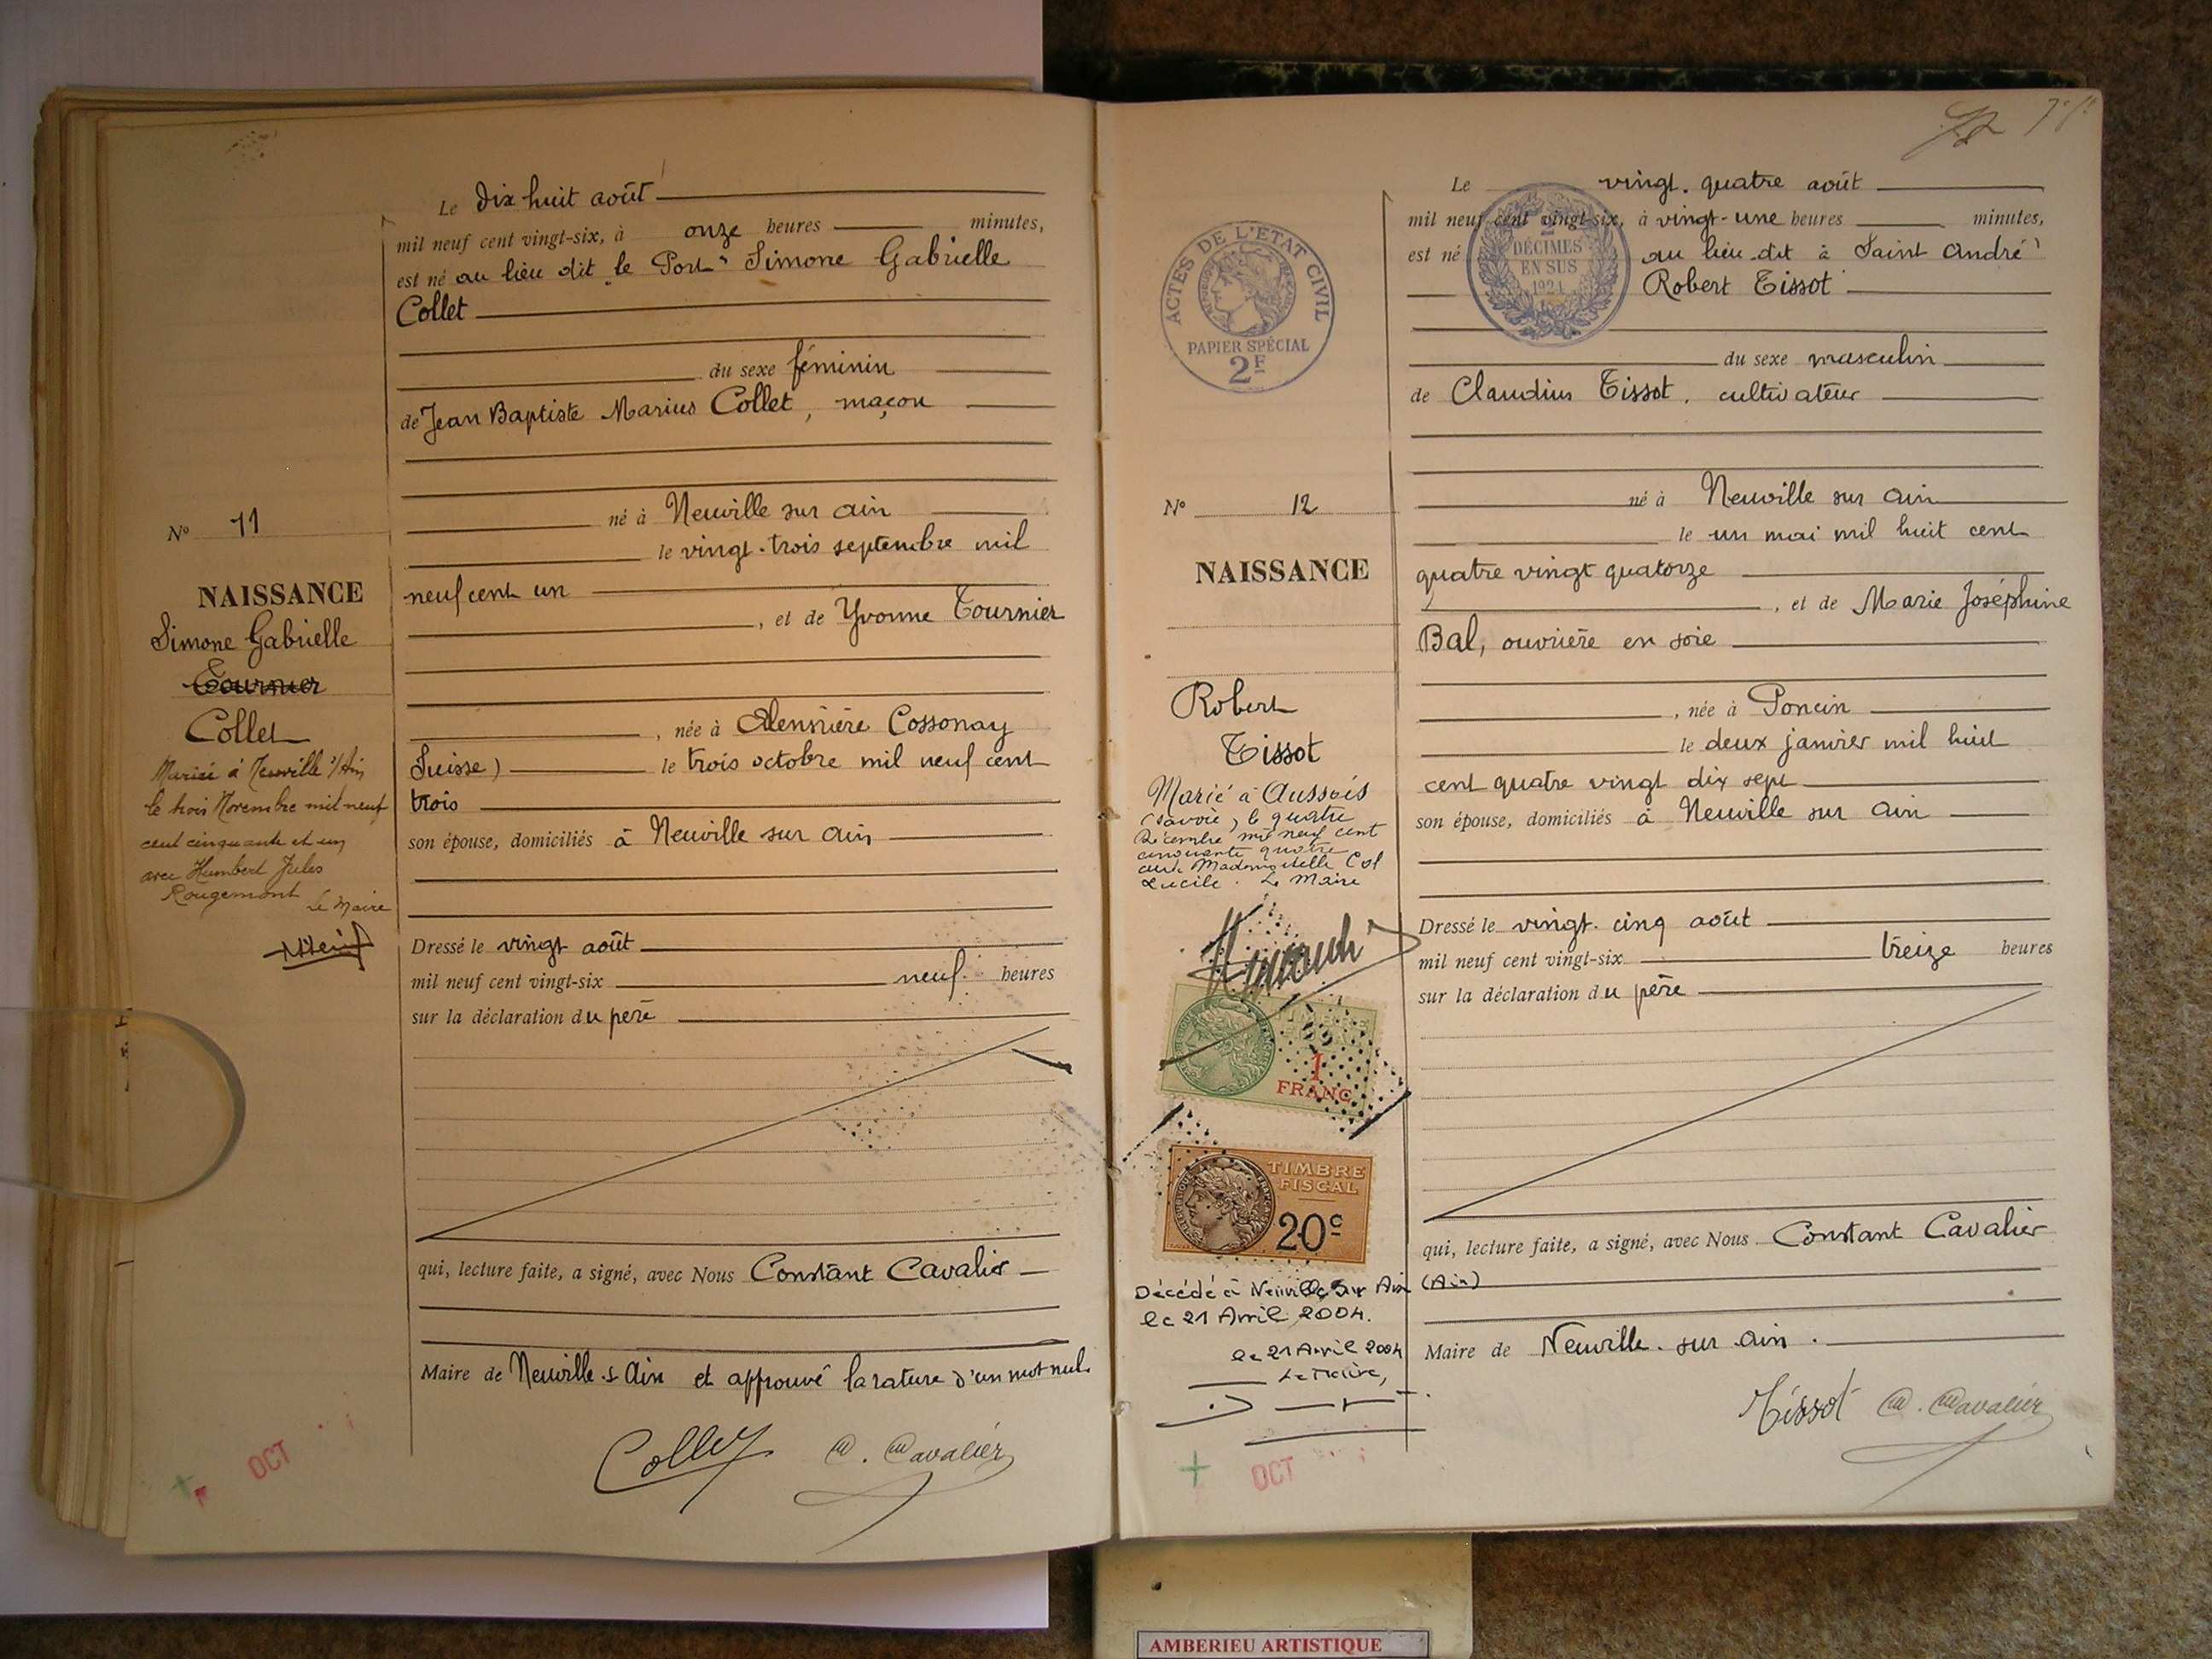 Le dix huit août
mil neuf cent vingt-six, à onze heures minutes,
est né au lieu dit "le Port" Simone Gabrielle
Collet
du sexe féminin
de Jean Baptiste Marius Collet, maçon
né à Neuville sur ain
le vingt-trois septembre mil
neuf cent un
, et de Yvonne Tournier
, née à Cossonay
Suisse) le trois octobre mil neuf cent
trois
son épouse, domiciliés à Neuville sur ain
Dressé le vingt août
mil neuf cent vingt-six neuf heures
sur la déclaration du père
qui, lecture faite, a signé, avec Nous Constant Cavalier
Maire de Neuville s Ain et approuvé la rature d'un mot nul.
Collet C. Cavalier
No 11
NAISSANCE
Simone Gabrielle
Tournier
Collet
Mariée à Neuville s/Ain
le trois Novembre mil neuf
cent cinquante et un
avec Humbert Jules
Rougemont
Le Maire
OCT
Le vingt-quatre août
mil neuf cent vingt-six, à vingt-une heures minutes,
est né au lieu-dit à Saint André
Robert Tissot
du sexe masculin
de Claudius Tissot, cultivateur
né à Neuville sur ain
le un mai mil huit cent
quatre vingt quatorze
, et de Marie Joséphine
Bal, ouvrière en soie
, née à Poncin
le deux janvier mil huit
cent quatre vingt dix sept
son épouse, domiciliés à Neuville sur ain
Dressé le vingt-cinq août
mil neuf cent vingt-six treize heures
sur la déclaration du père
qui, lecture faite, a signé, avec Nous Constant Cavalier
Maire de Neuville-sur ain.
Tissot C. Cavalier
2
DÉCIMES
EN SUS
1924
ACTES DE L'ETAT CIVIL
PAPIER SPÉCIAL
2F
No 12
NAISSANCE
Robert
Tissot
Marié à Aussois
(Savoie), le quatre
Décembre mil neuf cent
cinquante quatre
avec Mademoiselle Col
Lucile. Le Maire
1
FRANC
TIMBRE
FISCAL
20c
Décédé à Neuville sur Ain (Ain)
le 21 Avril 2004.
le 21 Avril 2004
Le Maire,
OCT
AMBERIEU ARTISTIQUE